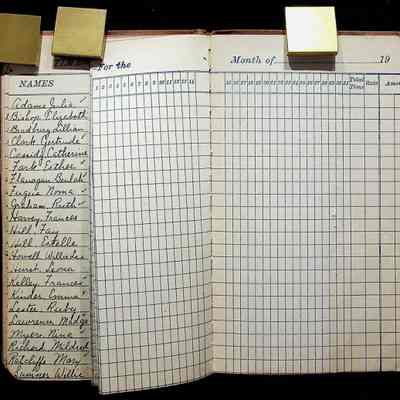 For the
Month of 19
NAMES
1 2 3 4 5 6 7 8 9 10 11 12 13 14
15 16 17 18 19 20 21 22 23 24 25 26 27 28 29 30 31 Total Time Rate Amo
Adams Julia
Bishop Elizabeth
Bradbury Lillian
Clark Gertrude
Cassidy Catherine
Farr Esther
Flanagan Beulah
Fuqua Noma
Graham Ruth
Harvey Frances
Hill Fay
Hill Estelle
Howell Willie Lee
Hurst Leona
Kelley Frances
Kinder Emma
Lester Ruby
Lawrence Madge
Myers Nina
Richard Mildred
Ratcliffe Mary
Sumner Willie